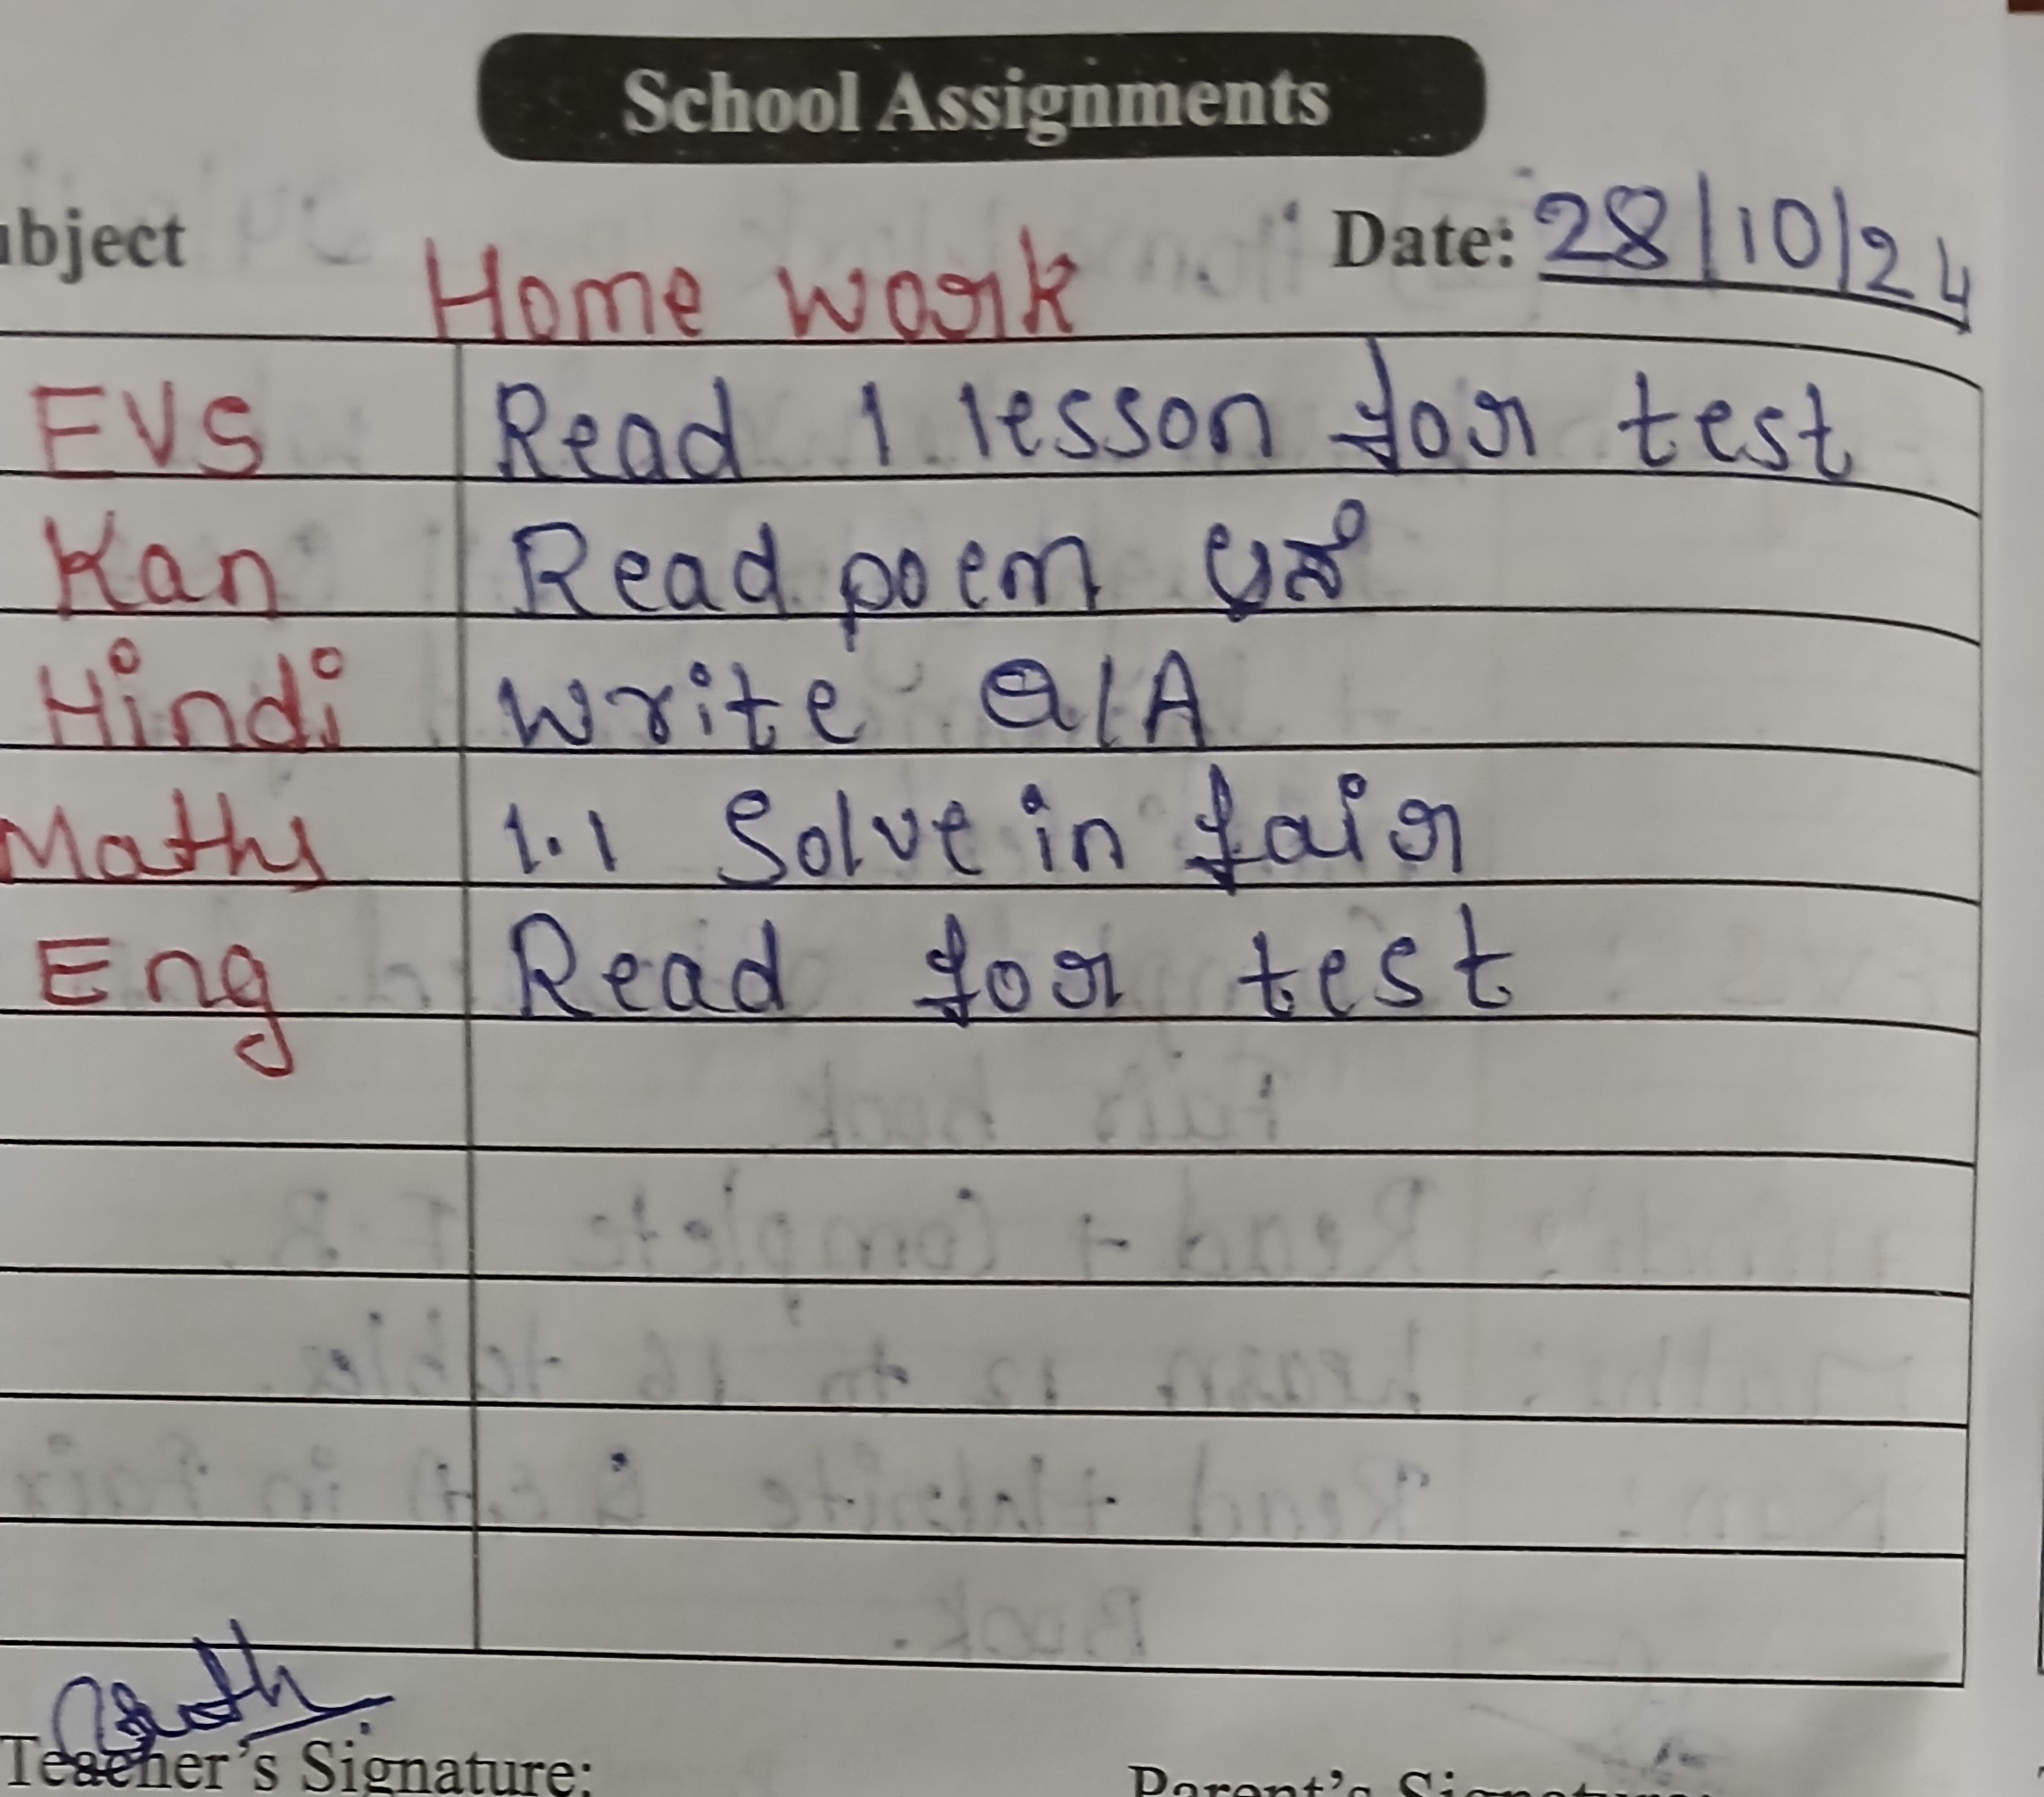 School Assignments
ubject Date: 28/10/24
Home work
EVS Read 1 lesson for test
Kan Read poem
Hindi write Q/A
Maths 1.1 Solve in fair
Eng Read for test
Teacher's Signature:
Parent's Signature: